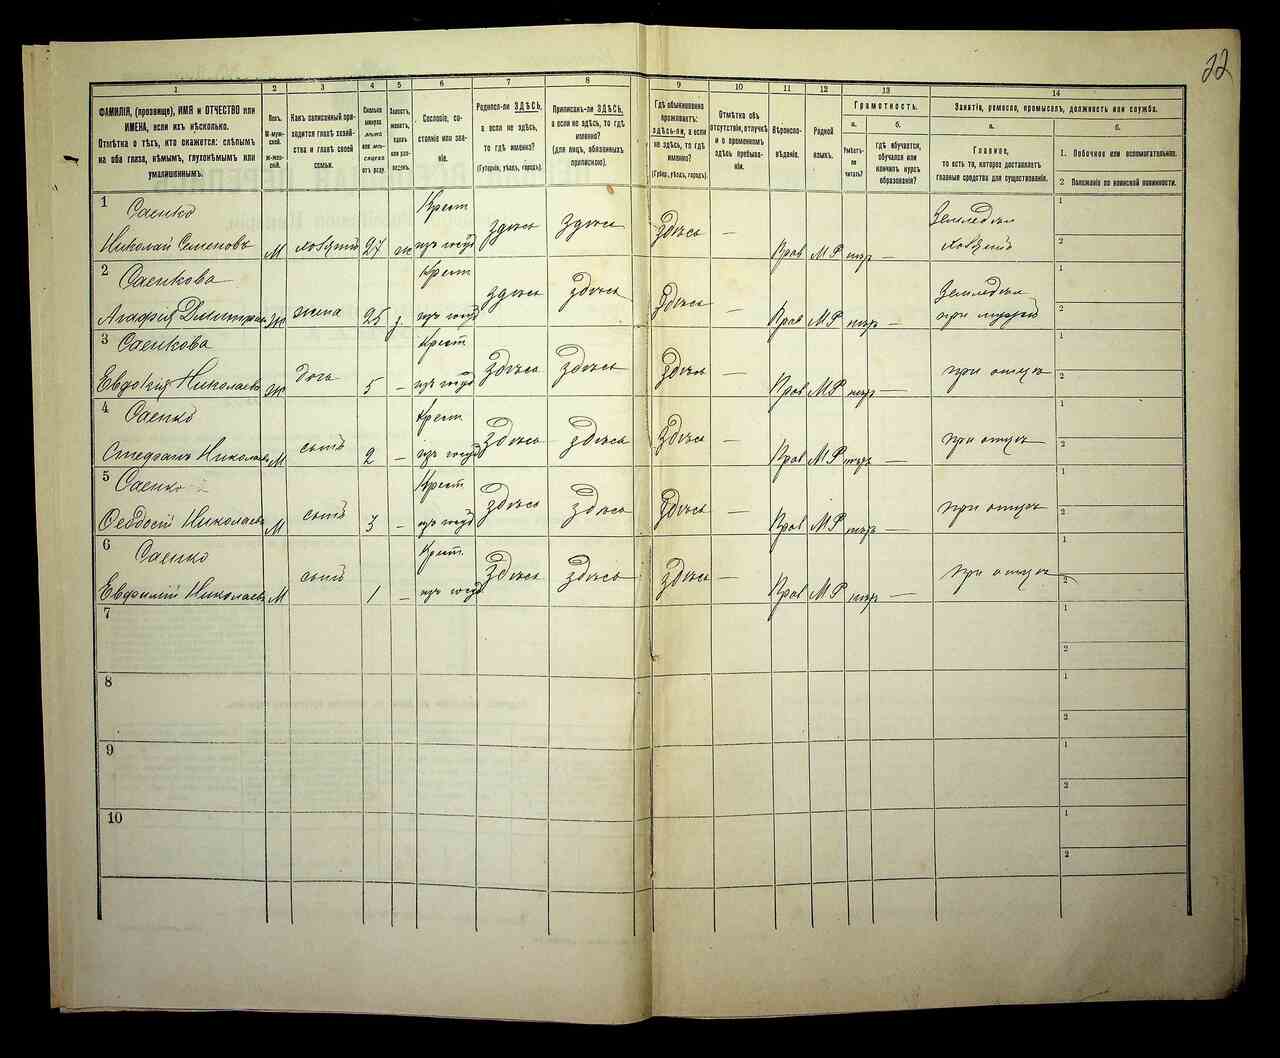 22
1
2
3
4
5
6
7
8
9
10
11
12
13
14
ФАМИЛІЯ, (прозвище), ИМЯ и ОТЧЕСТВО или
ИМЕНА, если ихъ нѣсколько.
Отмѣтка о тѣхъ, кто окажется: слѣпымъ
на оба глаза, нѣмымъ, глухонѣмымъ или
умалишеннымъ.
Полъ.
М-муж-
ской.
Ж-жен-
скій.
Какъ записанный при-
водится главѣ хозяй-
ства и главѣ своей
семьи.
Сколько
минуло
лѣтъ
или мѣ-
сяцевъ
отъ роду.
Холостъ,
женатъ,
вдовъ
или раз-
веденъ.
Сословіе, со-
стояніе или зва-
ніе.
Родился-ли ЗДѢСЬ,
а если не здѣсь,
то гдѣ именно?
(Губернія, уѣздъ, городъ).
Приписанъ-ли ЗДѢСЬ,
а если не здѣсь, то гдѣ
именно?
(для лицъ, обязанныхъ
припискою).
Гдѣ обыкновенно
проживаетъ:
здѣсь-ли, а если
не здѣсь, то гдѣ
именно?
(Губер., уѣздъ, городъ).
Отмѣтка объ
отсутствіи, отлучкѣ
и о временномъ
здѣсь пребыва-
ніи.
Вѣроиспо-
вѣданіе.
Родной
языкъ.
Грамотность.
а.
Умѣетъ-
ли
читать?
б.
гдѣ обучается,
обучался или
кончилъ курсъ
образованія?
Занятіе, ремесло, промыселъ, должность или служба.
а.
Главное,
то есть то, которое доставляетъ
главныя средства для существованія.
б.
1. Побочное или вспомогательное.
2 Положеніе по воинской повинности.
1
Саенко
Крест
Земледѣл
1
Николай Семеновъ М хозяинъ 27 ж изъ госуд здѣсь здѣсь здѣсь — Прав М Р нѣтъ — хозяинъ
2
2
Саенкова
Крест
Земледѣл
1
Агафія Дмитріева Ж жена 25 з. изъ госуд здѣсь здѣсь здѣсь — Прав М Р нѣтъ —
2
3
Саенкова
Крест
1
Евдокія Николаев Ж дочь 5 — изъ госуд здѣсь здѣсь здѣсь — Прав М Р нѣтъ — при отцѣ
2
4
Саенко
Крест
1
Стефанъ Николаев М сынъ 2 — изъ госуд здѣсь здѣсь здѣсь — Прав М Р нѣтъ — при отцѣ
2
5
Саенко
Крест
1
Феодосій Николаев М сынъ 3 — изъ госуд здѣсь здѣсь здѣсь — Прав М Р нѣтъ — при отцѣ
2
6
Саенко
Крест
1
Евфимій Николаев М сынъ 1 — изъ госуд здѣсь здѣсь здѣсь — Прав М Р нѣтъ — при отцѣ
2
7
1
2
8
1
2
9
1
2
10
1
2